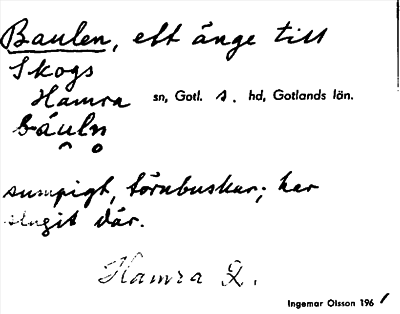 Baulen, ett änge till
Skogs
Hamra sn, Gotl. s. hd, Gotlands län.
bäuln
sumpigt, törnbuskar; har
slagit där.
Hamra R.
Ingemar Olsson 1961